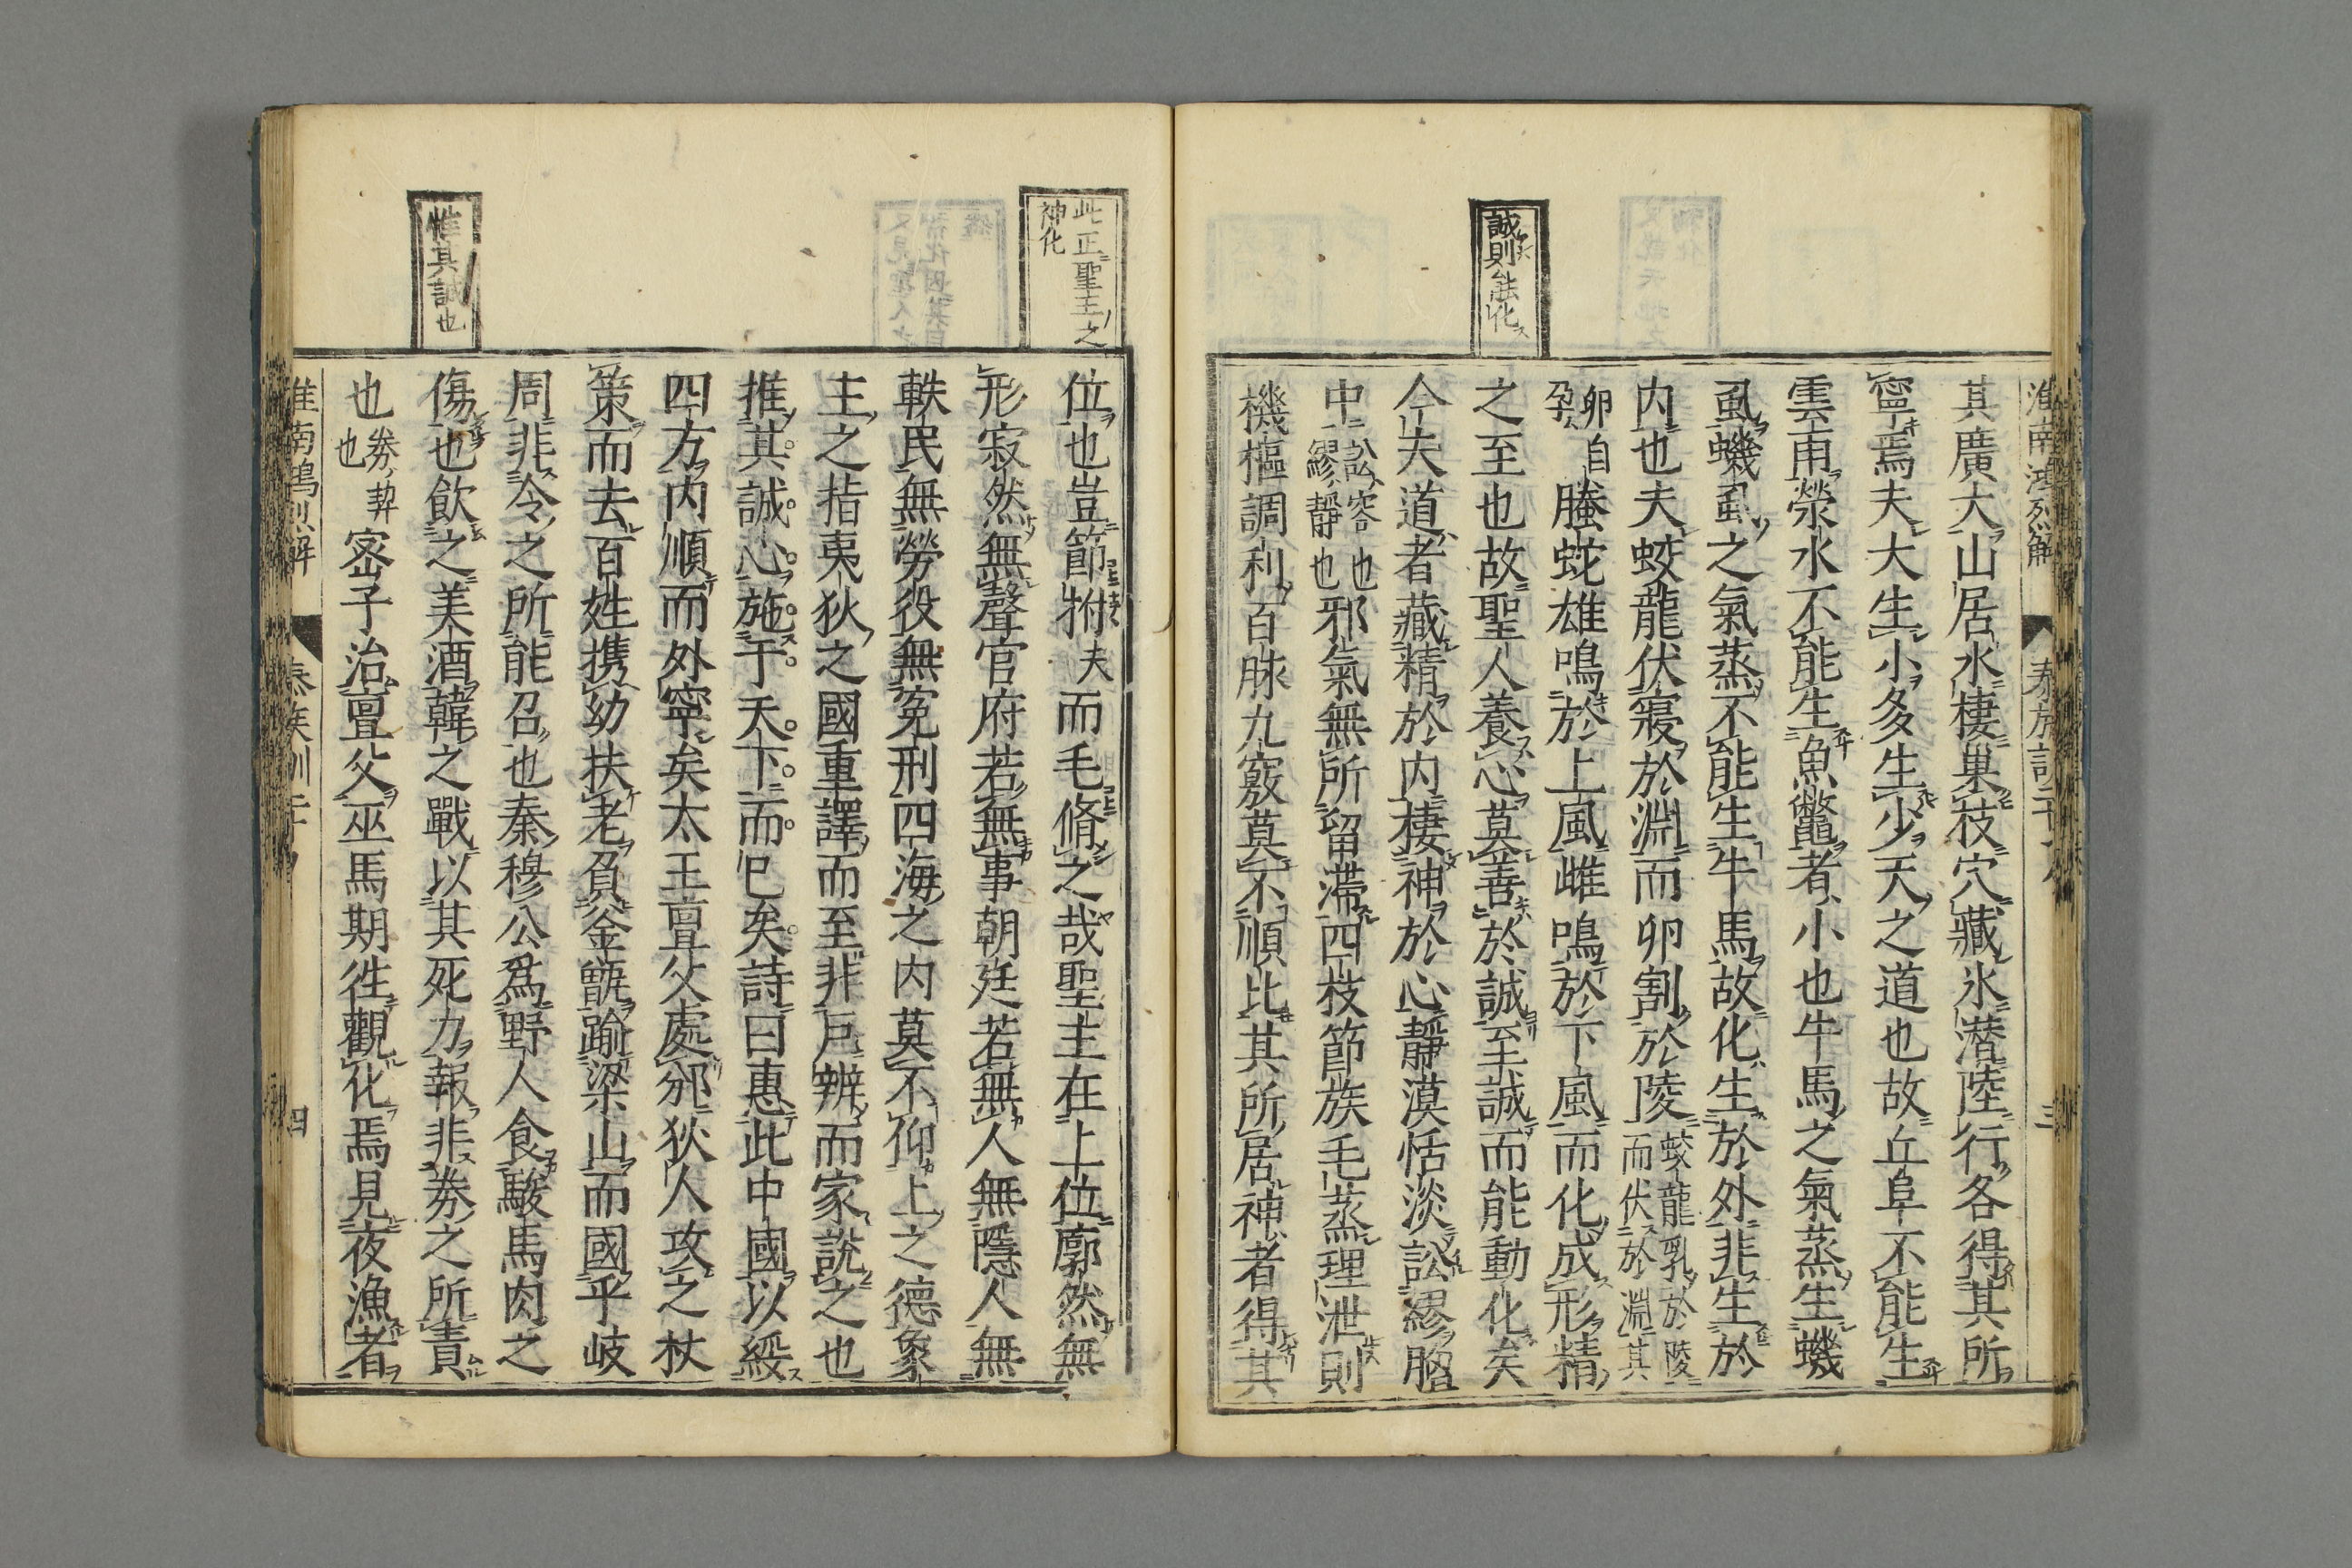 淮南鴻烈解 泰族訓二十 三
誠則能化
其廣大山居水棲巢枝穴藏水潜陸行各得其所
寧焉夫大生小多生少天之道也故丘阜不能生
雲雨滎水不能生魚鼈者小也牛馬之氣蒸生蟣
虱蟣虱之氣蒸不能生牛馬故化生於外非生於
内也夫蛟龍伏寢於淵而卵割於陵蛟龍乳於陵而伏於淵其
卵自孕螣蛇雄鳴於上風雌鳴於下風而化成形精
之至也故聖人養心莫善於誠至誠而能動化矣
今夫道者藏精於内棲神於心靜漠恬淡訟繆胷
中訟容也繆靜也邪氣無所留滯四枝節族毛蒸理泄則
機樞調利百脉九竅莫不順比其所居神者得其
此正聖主之神化
惟其誠也
位也豈節拊夫而毛脩之哉聖主在上位廓然無
形寂然無聲官府若無事朝廷若無人無隱人無
軼民無勞役無冤刑四海之内莫不仰上之德象
主之指夷狄之國重譯而至非戶辨而家說之也
推其誠心施于天下而已矣詩曰惠此中國以綏
四方内順而外寧矣太王亶父處邠狄人攻之杖
策而去百姓携幼扶老負釜甑踰梁山而國乎岐
周非令之所能召也秦穆公爲野人食駿馬肉之
傷也飲之美酒韓之戰以其死力報非券之所責
也券契也宻子治亶父巫馬期徃觀化焉見夜漁者
淮南鴻烈解 泰族訓二十 四